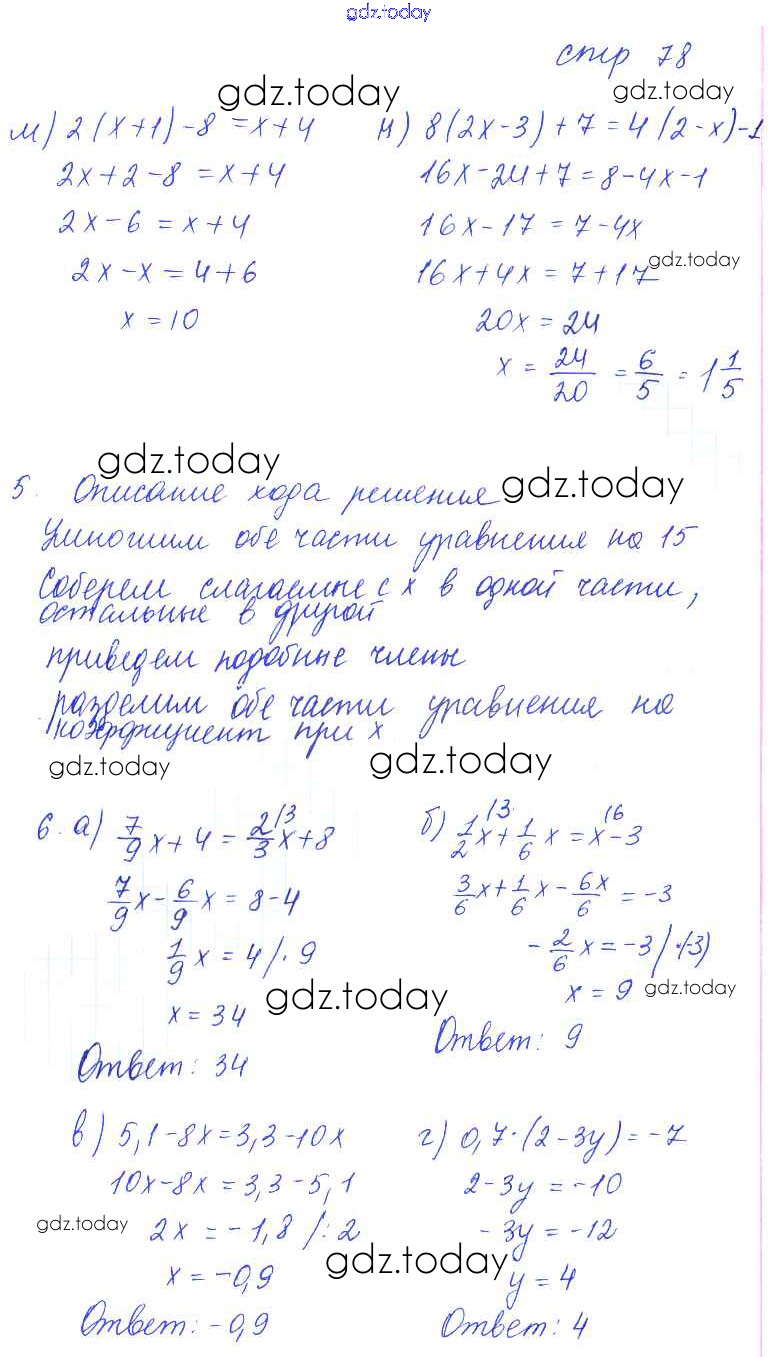 gdz.today
стр 78
gdz.today gdz.today
м) 2(x+1)-8 = x+4 н) 8(2x-3)+7=4(2-x)-1
2x+2-8 = x+4 16x-24+7=8-4x-1
2x-6 = x+4 16x-17 = 7-4x
gdz.today
2x-x = 4+6 16x+4x = 7+17
x = 10 20x = 24
x = 24/20 = 6/5 = 1 1/5
gdz.today gdz.today
5. Описание хода решения
Умножим обе части уравнения на 15
Соберем слагаемые с x в одной части,
остальные в другой
приведем подобные члены
разделим обе части уравнения на
коэффициент при x
gdz.today gdz.today
6. а) 7/9 x + 4 = 2/3 /3 x+8 б) 1/2 /3 x + 1/6 x = x /6 -3
7/9 x - 6/9 x = 8-4 3/6 x + 1/6 x - 6x/6 = -3
1/9 x = 4 /· 9 - 2/6 x = -3 /·(-3)
x = 34 gdz.today x = 9 gdz.today
Ответ: 34 Ответ: 9
в) 5,1-8x=3,3-10x г) 0,7·(2-3y)=-7
10x-8x = 3,3-5,1 2-3y = -10
gdz.today 2x = -1,8 /: 2 -3y = -12
gdz.today
x = -0,9 y = 4
Ответ: -0,9 Ответ: 4